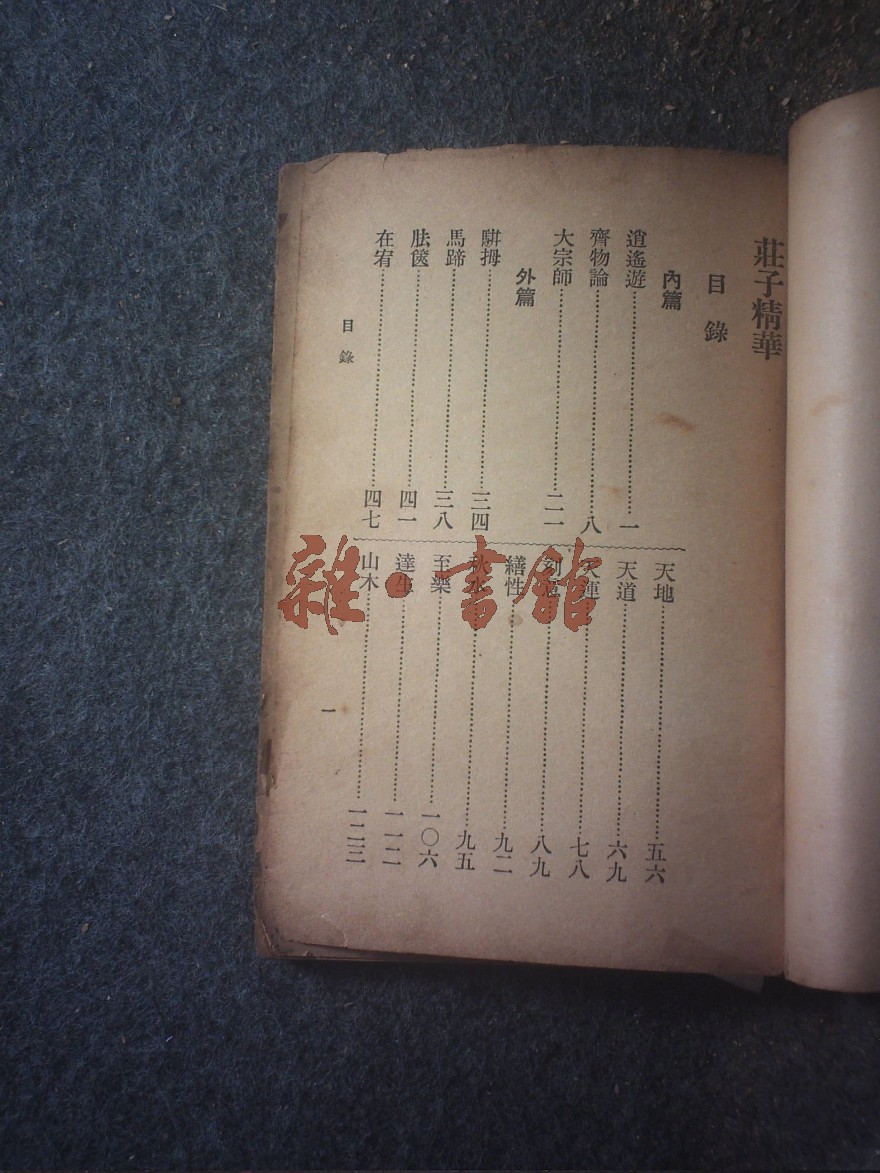 莊子精華
目錄
內篇
逍遙遊……一
齊物論……八
大宗師……二一
外篇
騈拇……三四
馬蹄……三八
胠篋……四一
在宥……四七
天地……五六
天道……六九
天運……七八
刻意……八九
繕性……九二
秋水……九五
至樂……一〇六
達生……一一二
山木……一二三
目錄
一
雜·書館